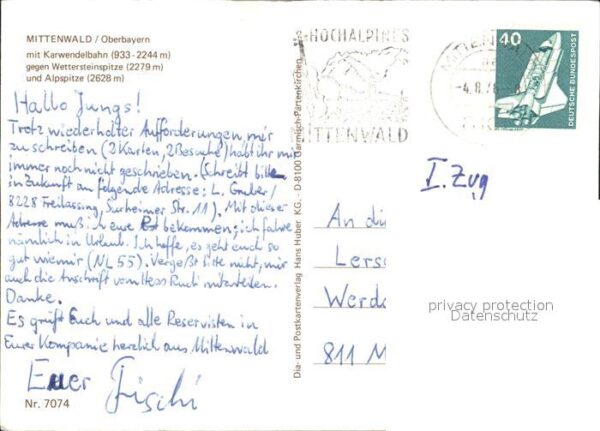 MITTENWALD / Oberbayern
mit Karwendelbahn (933-2244 m)
gegen Wettersteinspitze (2279 m)
und Alpspitze (2628 m)
Hallo Jungs!
Trotz wiederholter Aufforderungen mir
zu schreiben (2 Karten, 2 Besuche) habt ihr mir
immer noch nicht geschrieben. (Schreibt bitte
in Zukunft an folgende Adresse: L. Gruber/
8228 Freilassing, Surheimer Str. 11). Mit dieser
Adresse muß ich eure bekommen; ich fahre
nämlich in Urlaub. Ich hoffe, es geht euch so
gut wie mir (NL 55). Vergeßt bitte nicht, mir
auch die Anschrift vom mitzuteilen.
Danke.
Es grüßt Euch und alle Reservisten in
Eurer Kompanie herzlich aus Mittenwald
Euer Fischi
Nr. 7074
Dia- und Postkartenverlag Hans Huber KG. - D-8100 Garmisch-Partenkirchen
HOCHALPINES
MITTENWALD
40
DEUTSCHE BUNDESPOST
I. Zug
An di
Lersc
Werda
811 M
privacy protection
Datenschutz